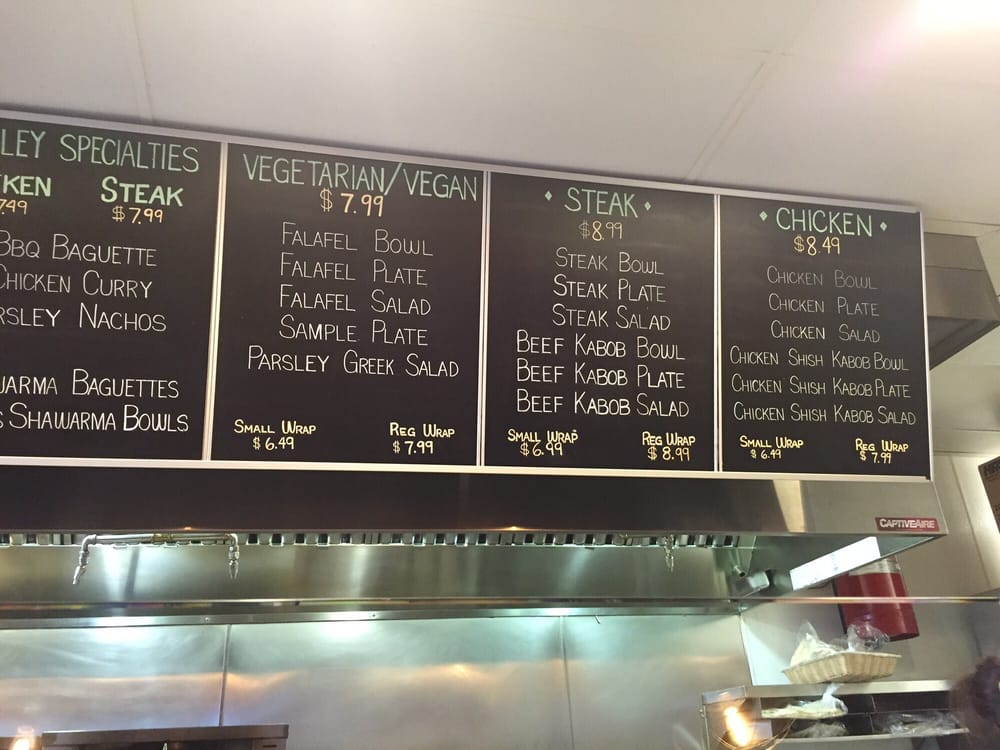 LEY SPECIALTIES
KEN STEAK
7.49 $7.99
BBQ BAGUETTE
CHICKEN CURRY
RSLEY NACHOS
WARMA BAGUETTES
S SHAWARMA BOWLS
VEGETARIAN/VEGAN
$7.99
FALAFEL BOWL
FALAFEL PLATE
FALAFEL SALAD
SAMPLE PLATE
PARSLEY GREEK SALAD
SMALL WRAP REG WRAP
$6.49 $7.99
STEAK
$8.99
STEAK BOWL
STEAK PLATE
STEAK SALAD
BEEF KABOB BOWL
BEEF KABOB PLATE
BEEF KABOB SALAD
SMALL WRAP REG WRAP
$6.99 $8.99
CHICKEN
$8.49
CHICKEN BOWL
CHICKEN PLATE
CHICKEN SALAD
CHICKEN SHISH KABOB BOWL
CHICKEN SHISH KABOB PLATE
CHICKEN SHISH KABOB SALAD
SMALL WRAP REG WRAP
$6.49 $7.99
CAPTIVEAIRE